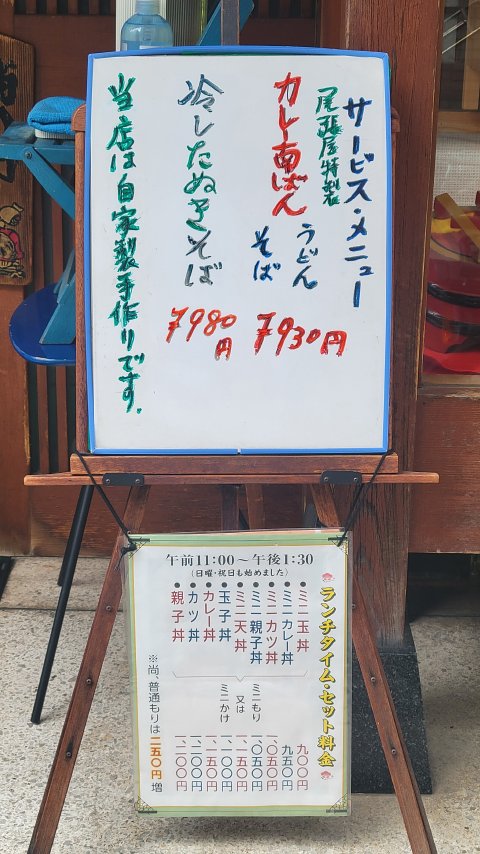 サービス・メニュー
尾張屋特製
カレー南ばん
うどん
そば
¥930円
冷したぬきそば
¥980円
当店は自家製手作りです。
午前11:00〜午後1:30
(日曜・祝日も始めました)
ランチタイム・セット料金
●ミニ玉丼
●ミニカレー丼
●ミニカツ丼
●ミニ親子丼
●ミニ天丼
●玉子丼
●カレー丼
●カツ丼
●親子丼
ミニもり
又は
ミニかけ
九〇〇円
九五〇円
一〇五〇円
一〇五〇円
一一五〇円
一一〇〇円
一一五〇円
※尚、普通もりは二五〇円増